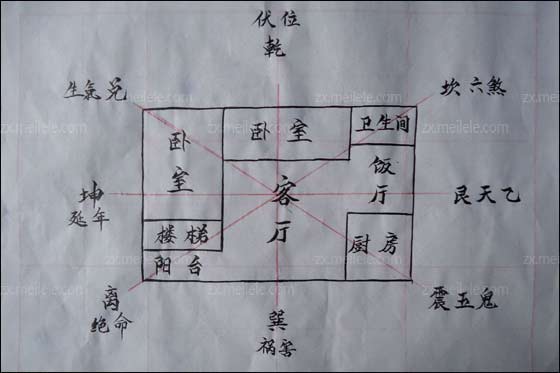 伏位
乾
生氣兑
坎六煞
卧室
卧室
卫生间
饭厅
坤
延年
客厅
艮天乙
楼梯
阳台
厨房
离
绝命
巽
祸害
震五鬼
zx.meilele.com
zx.meilele.com
zx.meilele.com